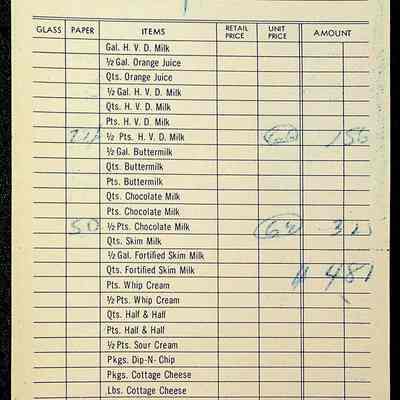 GLASS PAPER ITEMS RETAIL PRICE UNIT PRICE AMOUNT
Gal. H. V. D. Milk
½ Gal. Orange Juice
Qts. Orange Juice
½ Gal. H. V. D. Milk
Qts. H. V. D. Milk
Pts. H. V. D. Milk
½ Pts. H. V. D. Milk
½ Gal. Buttermilk
Qts. Buttermilk
Pts. Buttermilk
Qts. Chocolate Milk
Pts. Chocolate Milk
50 ½ Pts. Chocolate Milk
Qts. Skim Milk
½ Gal. Fortified Skim Milk
Qts. Fortified Skim Milk 481
Pts. Whip Cream
½ Pts. Whip Cream
Qts. Half & Half
Pts. Half & Half
½ Pts. Sour Cream
Pkgs. Dip-N- Chip
Pkgs. Cottage Cheese
Lbs. Cottage Cheese